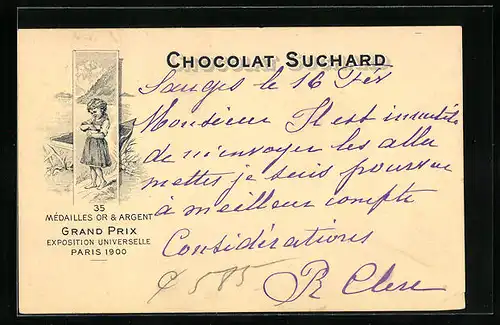 CHOCOLAT SUCHARD
le 16 Fév
Monsieur Il est inutile
de m'envoyer les allu
mettes je suis pourvu
à meilleur compte
Considérations
35
MÉDAILLES OR & ARGENT
GRAND PRIX
EXPOSITION UNIVERSELLE
PARIS 1900
585